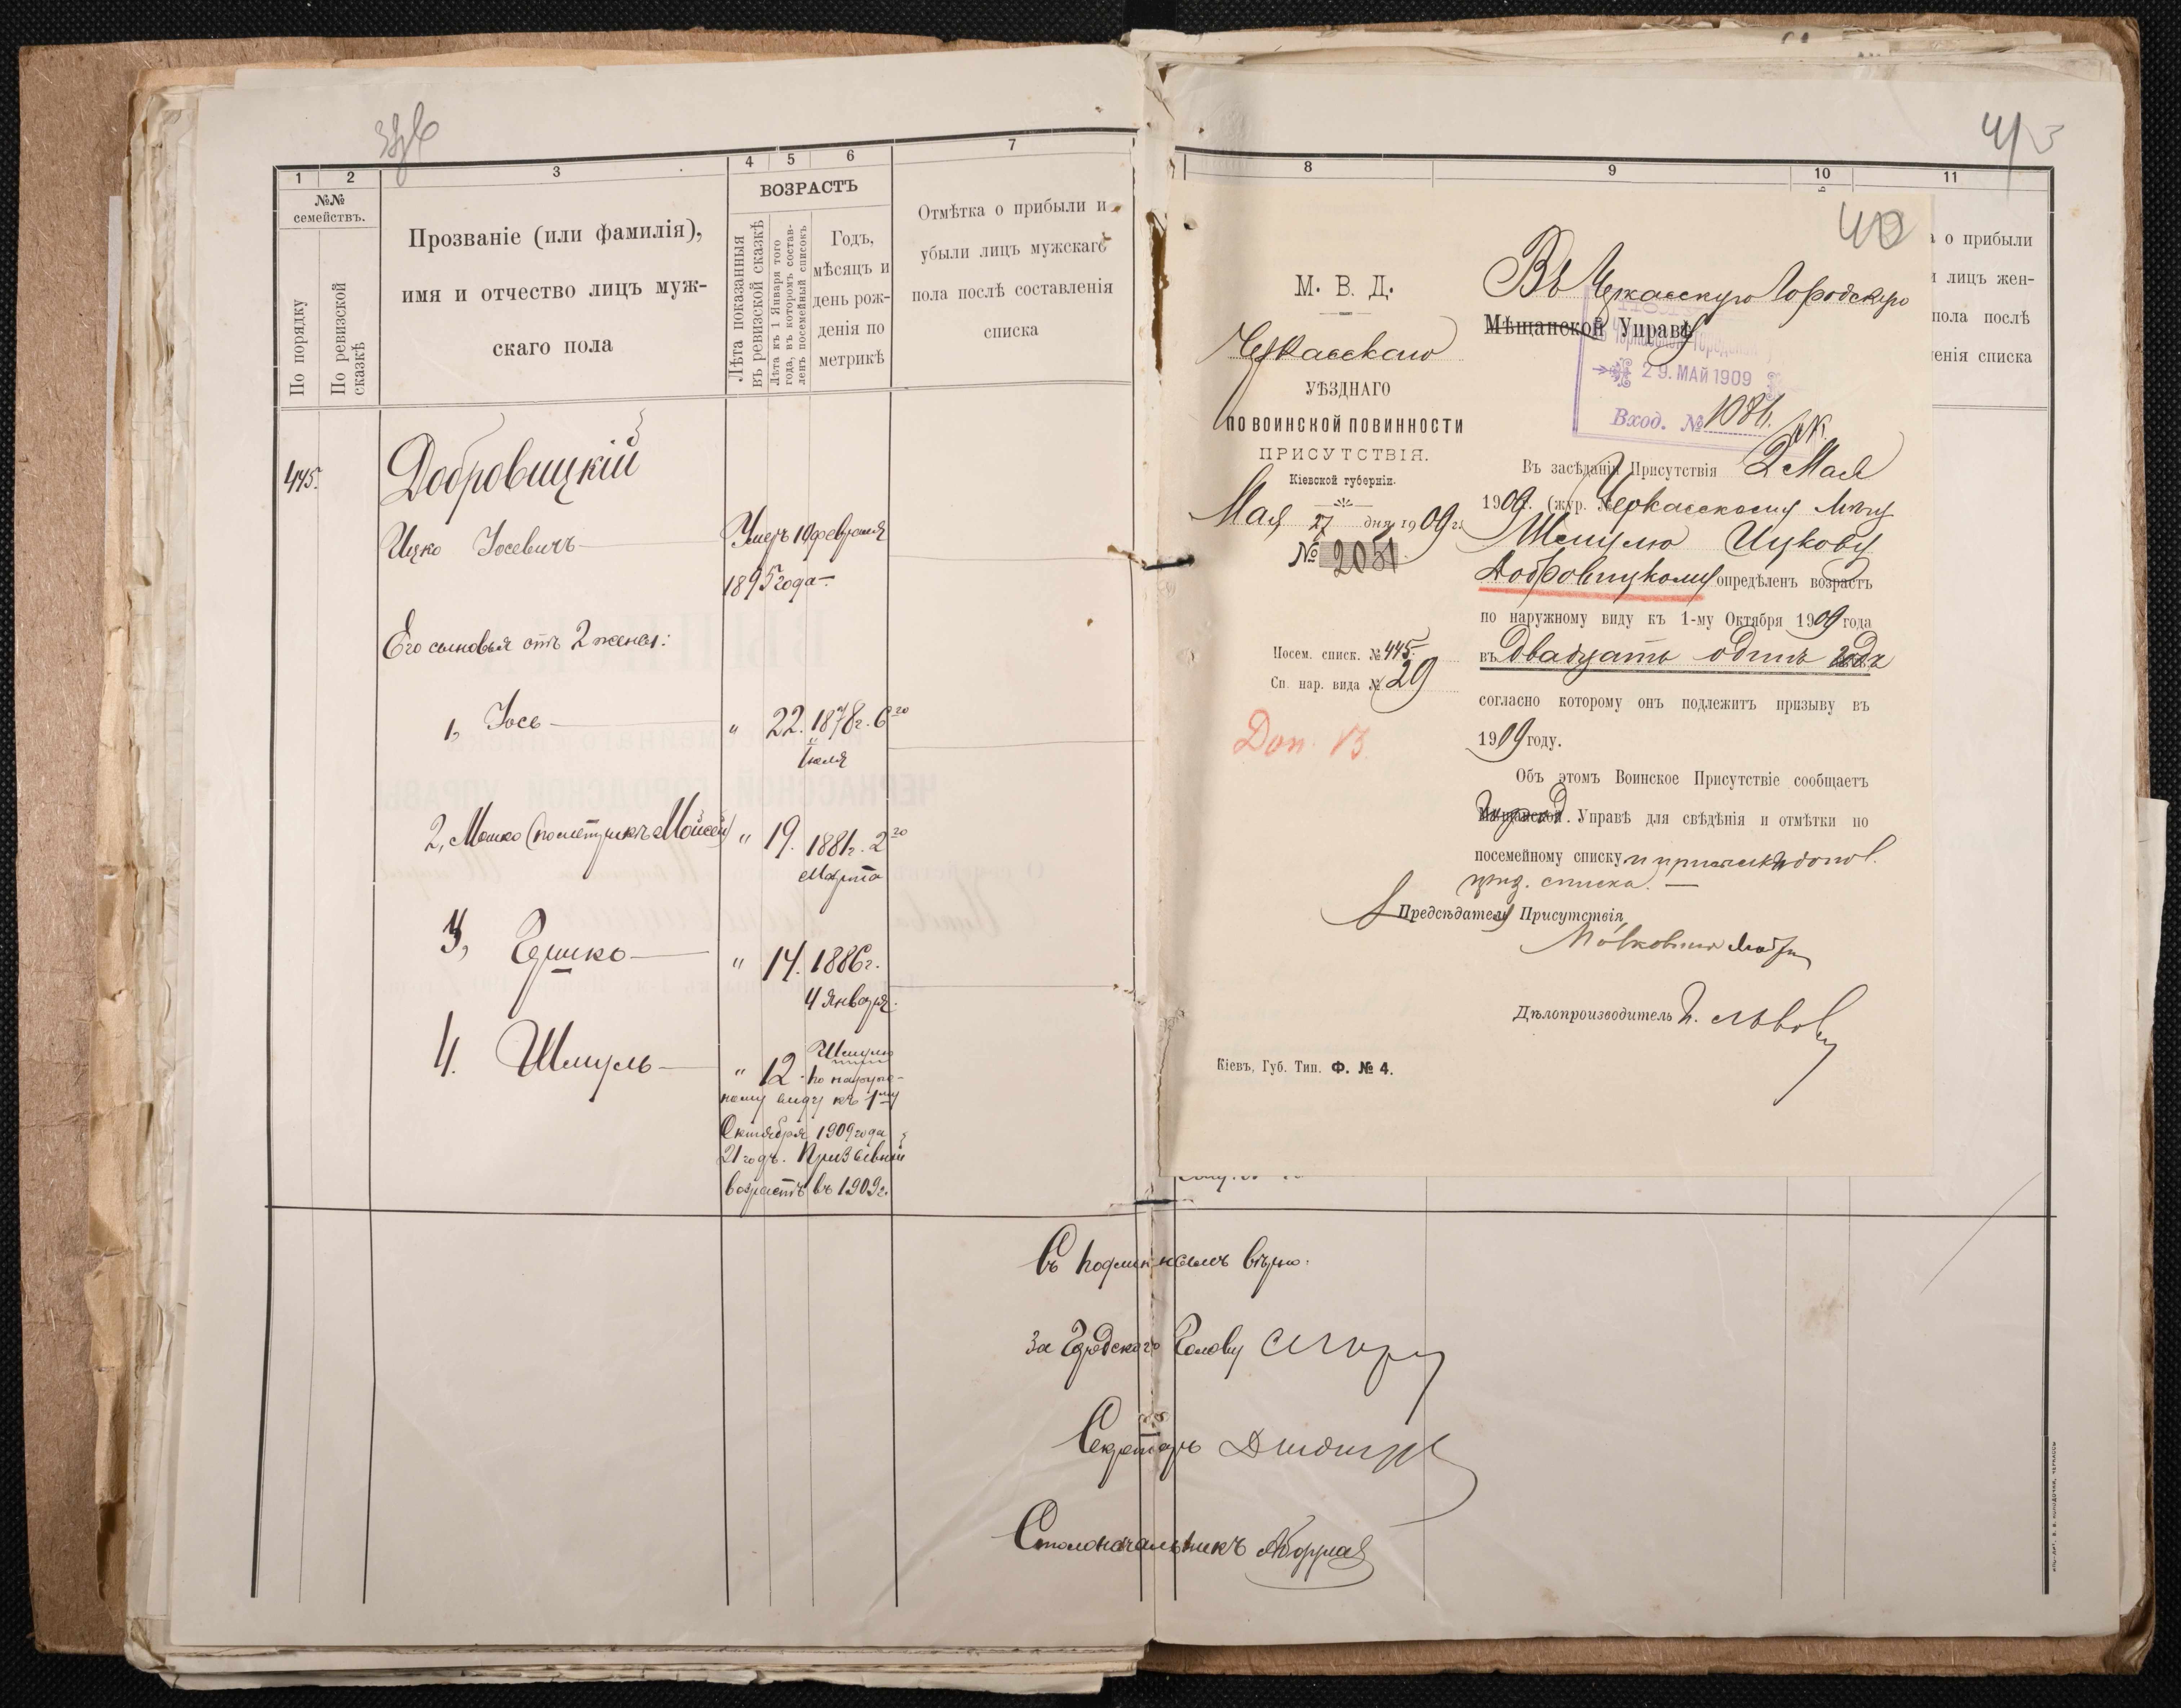 1
2
3
4
5
6
7
№№
семействъ.
По порядку
По ревизской
сказкѣ
Прозваніе (или фамилія),
имя и отчество лицъ муж-
скаго пола
ВОЗРАСТЪ
Лѣта показанныя
въ ревизской сказкѣ
Лѣта къ 1 Января того
года, въ которомъ состав-
ленъ посемейный списокъ
Годъ,
мѣсяцъ и
день рож-
денія по
метрикѣ
Отмѣтка о прибыли и
убыли лицъ мужскаго
пола послѣ составленія
списка
445.
Добровицкій
Ицко Іосевичъ
Умеръ 19 февраля
1895 года
Его сыновья отъ 2 жены:
1, Іось " 22. 1878 г. 6го
Іюля
2, Мошко (по метрикѣ Мойсей) " 19. 1881 г. 2го
Марта
3, Гершко " 14. 1886 г.
4 Января.
4. Шмуль " 12. Шмулю
по наруж-
ному виду къ 1му
Октября 1909 года
21 годъ. Призывный
возрастъ въ 1909 г.
Съ подлиннымъ вѣрно:
За Городского Голову
Секретарь
Столоначальникъ
8
9
10
11
о прибыли
лицъ жен-
пола послѣ
енія списка
40
М. В. Д.
Черкасскаго
УѢЗДНАГО
ПО ВОИНСКОЙ ПОВИННОСТИ
ПРИСУТСТВІЯ.
Кіевской губерніи.
Мая 27 дня 1909 г.
№ 2051
Посем. списк. № 445.
Сп. нар. вида № 29
Доп. 13
Кіевъ, Губ. Тип. Ф. № 4.
Въ Черкасскую Городскую
Мѣщанской Управѣ
29. МАЙ 1909
Вход. № 1084.
Въ засѣданіи Присутствія 2 Мая
1909 г. (жур. № Черкасскому мѣщ
Шмулю Ицкову
Добровицкому опредѣленъ возрастъ
по наружному виду къ 1-му Октября 1909 года
въ двадцать одинъ годъ
согласно которому онъ подлежитъ призыву въ
1909 году.
Объ этомъ Воинское Присутствіе сообщаетъ
Мѣщанской Управѣ для свѣдѣнія и отмѣтки по
посемейному списку и
списка.
Предсѣдатель Присутствія
Дѣлопроизводитель